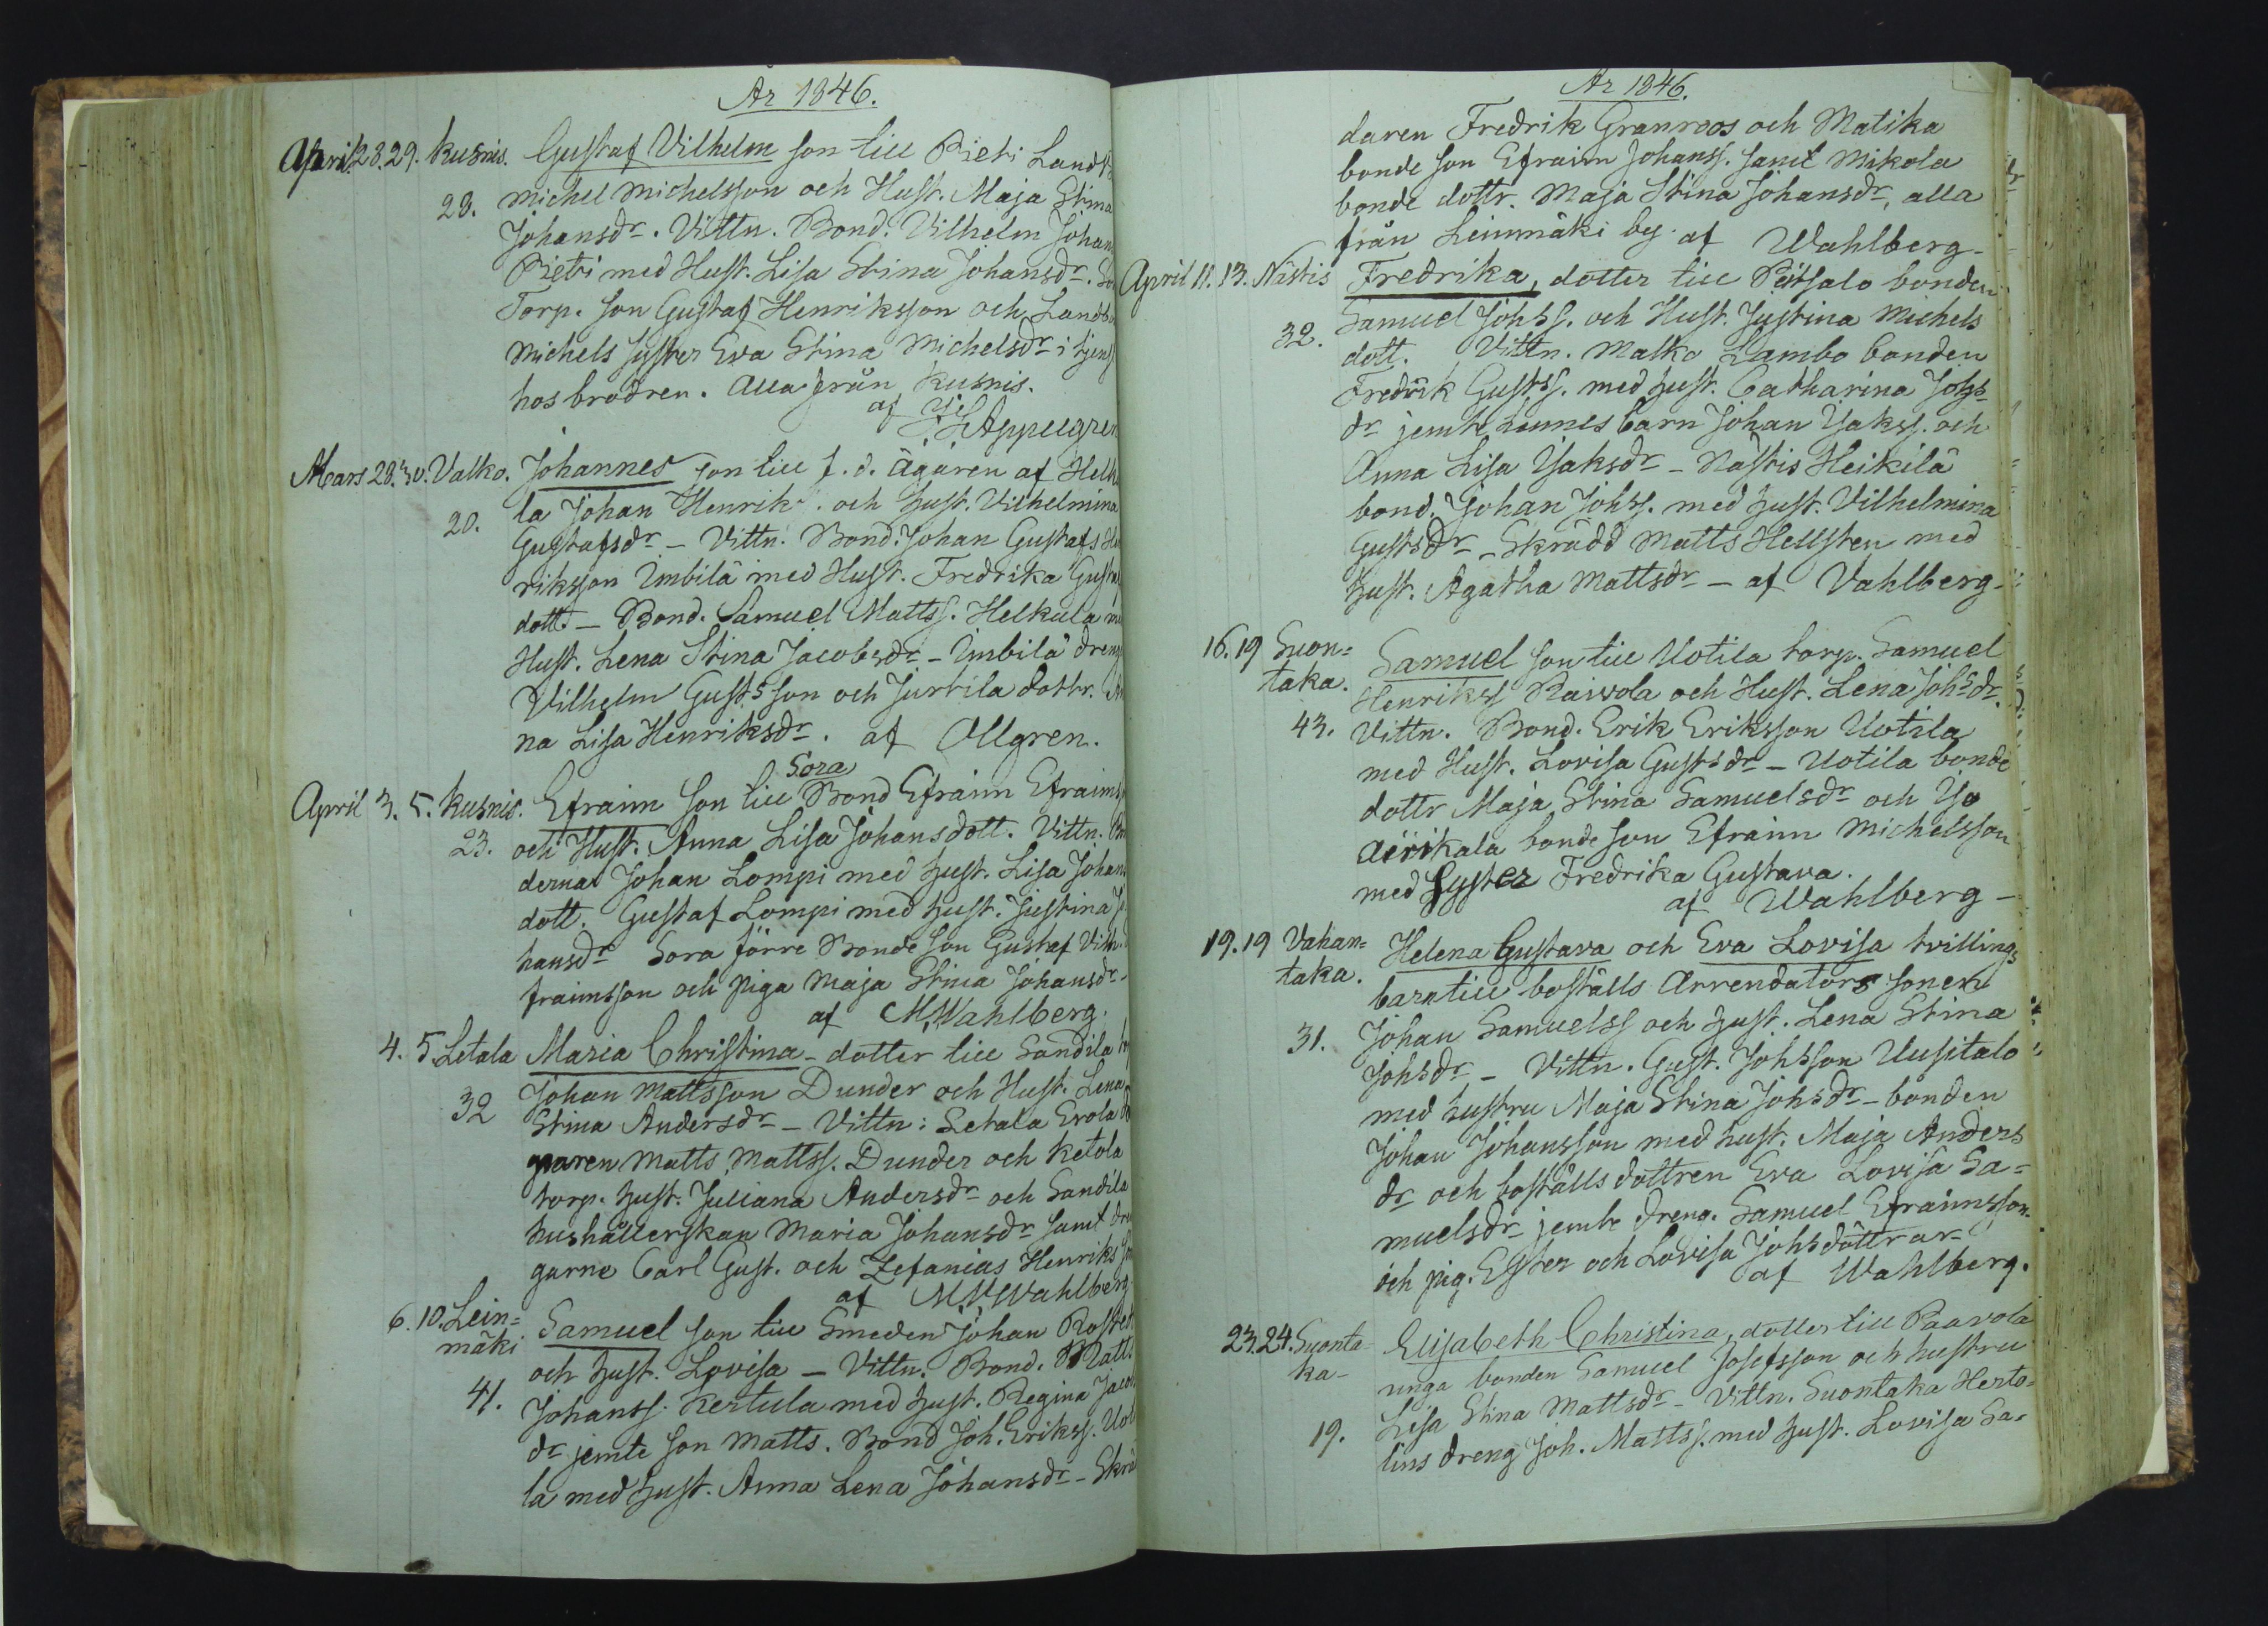 År 1846.
April 28. 29. Kusnis. Gustaf Vilhelm son till Pietri Landb
28. Michel Michelsson och Hust. Maja Stina
Johansdr. Vittn. Bond. Vilhelm Johans
Pietri med Hust. Lisa Stina Johansdr.
Torp. son Gustaf Henriksson och Landb
Michels syster Eva Stina Michelsdr i tjenst
hos brodren. Alla från Kusnis.
af Appelgren
Mars 28. 30. Valko. Johannes son till f. d. Ägaren af Helku
20. la Johan Henrik. och Hust. Vilhelmina
Gustafsdr - Vittn. Bond. Johan Gustafs Hen
riksson Imbilä med Hust. Fredrika Gustafs
dott. - Bond. Samuel Mattss. Helkula
Hust. Lena Stina Jacobsdr. - Imbilä dreng
Vilhelm Gustsson och Jurtila dottr.
na Lisa Henriksdr. af Allgren.
Sora
April 3. 5. Kusnis. Efraim son till Bond Efraim Efraims
23. och Hust. Anna Lisa Johansdott. Vittn.
derna Johan Lompi med Hust. Lisa Johans
dott. Gustaf Lompi med Hust. Justina Jo
hansdr Sora förre Bonde son Gustaf
fraimsson och piga Maja Stina Johansdr -
af M. Wahlberg.
4. 5. Letala Maria Christina - dotter till Sandila
32 Johan Mattsson Dunder och Hust. Lena
Stina Andersdr - Vittn: Letala Erola
garen Matts Mattss. Dunder och Ketola
torp. Hust. Juliana Andersdr och Sandila
hushållerskan Maria Johansdr samt dren
garne Carl Gust. och Zefanias Henriks
af M Wahlberg
6. 10. Lein=
mäki Samuel son till Smeden Johan Rostedt
och Hust. Lovisa - Vittn. Bond. Matts
41. Johanss. Kertula med Hust. Regina Jacobs
dr jemte son Matts. Bond Joh. Erikss.
la med Hust. Anna Lena Johansdr - Skräd
År 1846.
daren Fredrik Granroos och Matika
bonde son Efraim Johanss. samt Mikola
bonde dottr. Maja Stina Johansdr, alla
från Leinmäki by. af Wahlberg -
April 11. 13. Nästis Fredrika, dotter till Peitsalo bonden
32. Samuel Johss. och Hust. Justina Michels
dott. Vittn. Malko Lambo bonden
Fredrik Gustss. med Hust. Catharina Johs
dr jemte hennes barn Johan Isakss. och
Anna Lisa Isaksdr - Nästis Heikilä
bond. Johan Johss. med Hust. Vilhelmina
Gustsdr - Skrädd Matts Hellsten med
Hust. Agatha Mattsdr - af Vahlberg -
16. 19 Suon=
taka. Samuel son till Uotila torp. Samuel
Henrikss Raivola och Hust. Lena Johsdr.
43. Vittn. Bond. Erik Eriksson Uotila
med Hust. Lovisa Gustsdr - Uotila bonde
dottr Maja Stina Samuelsdr och Iso
Äirikala bonde son Efraim Michelsson
med Syster Fredrika Gustava.
af Wahlberg -
19. 19 Vahan=
taka. Helena Gustava och Eva Lovisa tvillings
barn till boställs Arrendators sonen
31. Johan Samuelss och Hust. Lena Stina
Johsdr - Vittn. Gust. Johsson Uusitalo
med hustru Maja Stina Johsdr - bonden
Johan Johansson med hust. Maja Anders
dr och boställs dottren Eva Lovisa Sa=
muelsdr jemte dreng. Samuel Efraimsson
och pig. Ester och Lovisa Johsdöttrar -
af Wahlberg.
23. 24. Suonta
ka - Elisabeth Christina, dotter till Paavola
unga bonden Samuel Josefsson och hustru
19. Lisa Stina Mattsdr - Vittn. Suontaka Herto=
lins dreng Joh. Mattss. med Hust. Lovisa Sa=